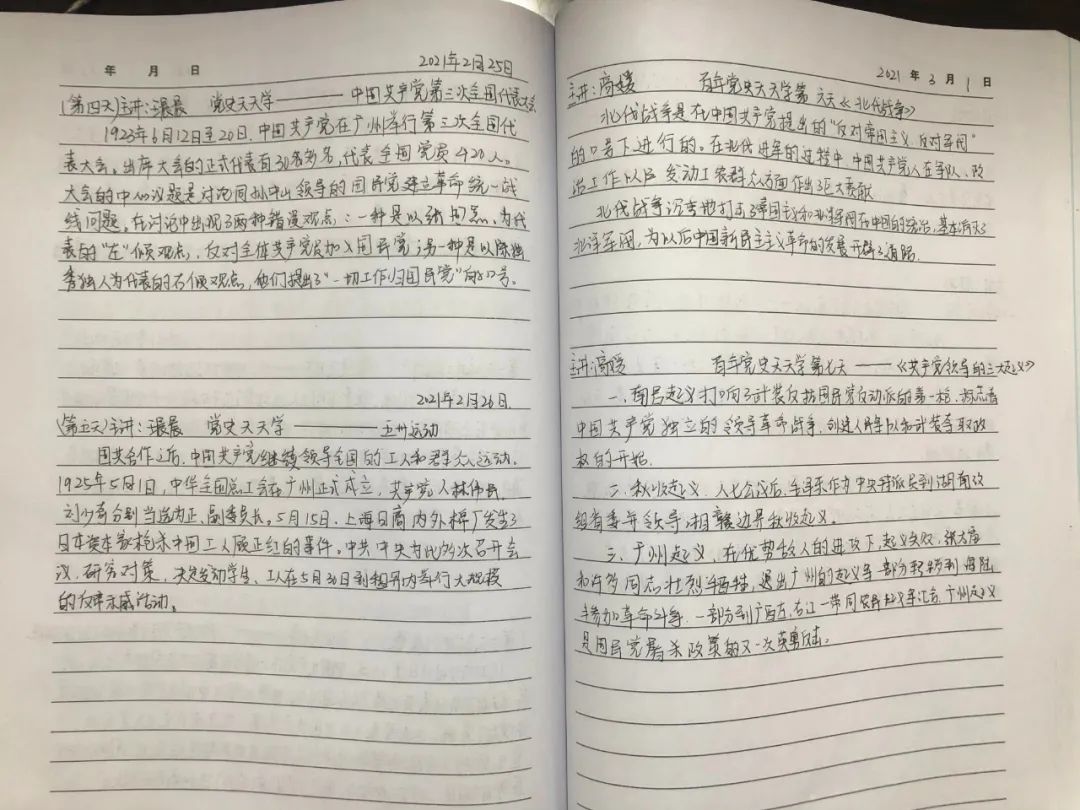 年 月 日 2021年2月25日
(第四天)主讲: 党史天天学——中国共产党第三次全国代表大会
1923年6月12日至20日,中国共产党在广州举行第三次全国代
表大会。出席大会的正式代表有30名多名,代表全国党员420人。
大会的中心议题是讨论同孙中山领导的国民党建立革命统一战
线问题。在讨论中出现了两种错误观点:一种是以张国焘为代
表的"左"倾观点,反对全体共产党员加入国民党;另一种是以陈独
秀独人为代表的右倾观点,他们提出了"一切工作归国民党"的口号。
2021年2月26日.
(第五天)主讲: 党史天天学——五卅运动
国共合作之后,中国共产党继续领导全国的工人和群众运动.
1925年5月1日,中华全国总工会在广州正式成立,共产党人林伟民、
刘少奇分别当选为正、副委员长。5月15日,上海日商内外棉厂发生了
日本资本家枪杀中国工人顾正红的事件。中共中央为此多次召开会
议,研究对策,决定发动学生、工人在5月30日到租界内举行大规模
的反帝示威活动。
2021年3月1日
主讲:高媛 百年党史天天学第六天《北伐战争》
北伐战争是在中国共产党提出的"反对帝国主义,反对军阀"
的口号下进行的。在北伐进军的过程中,中国共产党人在军队、政
治工作以及发动工农群众方面作出了巨大贡献
北伐战争沉重地打击了帝国主义和北洋军阀在中国的统治,基本消灭了
北洋军阀,为以后中国新民主主义革命的发展开辟了道路.
主讲:高媛 百年党史天天学第七天——《共产党领导的三大起义》
一、南昌起义打响了武装反抗国民党反动派的第一枪,标志着
中国共产党独立的领导革命战争,创建人民军队和武装夺取政
权的开始.
二、秋收起义,八七会议后,毛泽东作为中央特派员到湖南改
组省委并领导湘赣边界秋收起义。
三、广州起义,在优势敌人的进攻下,起义失败,张太雷
和许多同志壮烈牺牲,退出广州的起义军一部分转移到海陆
丰参加革命斗争,一部分到广西左、右江一带同农民起义军汇合.广州起义
是国民党屠杀政策的又一次英勇反击。